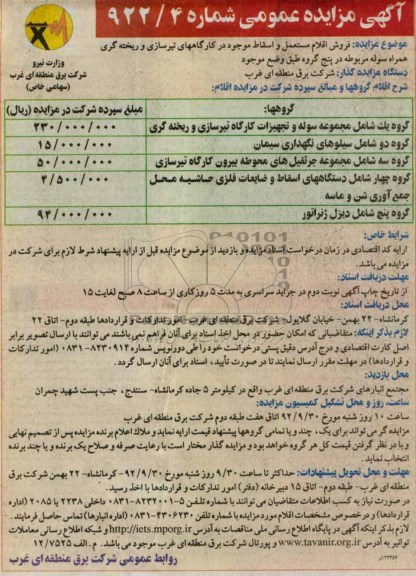 آگهی مزایده عمومی شماره ۹۲۲/۴
وزارت نیرو
شرکت برق منطقه ای غرب
(سهامی خاص)
موضوع مزایده: فروش اقلام مستعمل و اسقاط موجود در کارگاههای تیرسازی و ریخته گری
همراه سوله مربوطه در پنج گروه طبق وضع موجود
دستگاه مزایده گذار: شرکت برق منطقه ای غرب
شرح اقلام گروهها و مبالغ سپرده شرکت در مزایده اقلام:
گروهها: مبلغ سپرده شرکت در مزایده (ریال)
گروه یک شامل مجموعه سوله و تجهیزات کارگاه تیرسازی و ریخته گری ۲۳۰/۰۰۰/۰۰۰
گروه دو شامل سیلوهای نگهداری سیمان ۱۵/۰۰۰/۰۰۰
گروه سه شامل مجموعه جرثقیل های محوطه بیرون کارگاه تیرسازی ۵۰/۰۰۰/۰۰۰
گروه چهار شامل دستگاههای اسقاط و ضایعات فلزی حاشیه محل ۴/۵۰۰/۰۰۰
جمع آوری شن و ماسه
گروه پنج شامل دیزل ژنراتور ۹۴/۰۰۰/۰۰۰
شرایط خاص:
ارایه کد اقتصادی در زمان درخواست اسناد مزایده و بازدید از موضوع مزایده قبل از ارایه پیشنهاد شرط لازم برای شرکت در
مزایده می باشد.
مهلت دریافت اسناد:
از تاریخ چاپ آگهی نوبت دوم در جراید سراسری به مدت ۵ روز کاری از ساعت ۸ صبح لغایت ۱۵
محل دریافت اسناد:
کرمانشاه- ۲۲ بهمن- خیابان گلایول- شرکت برق منطقه ای غرب- امور تدارکات و قراردادها طبقه دوم- اتاق ۲۲
لازم بذکر اینکه: متقاضیانی که امکان حضور در محل اخذ اسناد برای آنان فراهم نمی باشند می توانند با ارسال تصویر برابر
اصل کارت اقتصادی و درج آدرس دقیق پستی درخواست خود را طی دورنویس شماره ۸۲۳۰۹۱۴-۰۸۳۱ (امور تدارکات
و قراردادها) در مهلت مقرر ارسال نمایند تا در صورت تأیید، اسناد برای آنان ارسال گردد.
محل بازدید:
مجتمع انبارهای شرکت برق منطقه ای غرب واقع در کیلومتر ۵ جاده کرمانشاه- سنندج، جنب پست شهید چمران
ساعت، روز و محل تشکیل کمیسیون مزایده:
ساعت ۱۰ روز شنبه مورخ ۹۲/۹/۳۰ اتاق هفت طبقه دوم شرکت برق منطقه ای غرب
مزایده گر می تواند برای یک، چند و یا تمامی گروهها پیشنهاد قیمت ارایه نماید و ملاک اعلام برنده مزایده پس از تصمیم نهایی
و با در نظر گرفتن قیمت کل هر گروه خواهد بود و مزایده گذار مختار است با رعایت صرفه و صلاح یک برنده و یا چند برنده
انتخاب نماید.
مهلت و محل تحویل پیشنهادات: حداکثر تا ساعت ۹/۳۰ روز شنبه مورخ ۹۲/۹/۳۰- کرمانشاه- ۲۲ بهمن شرکت برق
منطقه ای غرب- طبقه دوم- اتاق ۱۵ دبیرخانه (دفتر) امور تدارکات و قراردادها با اخذ رسید.
در صورت نیاز به کسب اطلاعات متقاضیان می توانند با شماره تلفن ۵-۸۲۳۲۰۰۱-۰۸۳۱ داخلی ۲۲۳۸ یا ۲۰۸۵ (اداره
قراردادها) و در خصوص مشخصات اقلام مورد مزایده با شماره تلفن ۴۳۰۶۲۳۰-۰۸۳۱ (اداره انبارها) تماس حاصل فرمایند.
لازم بذکر اینکه آگهی در پایگاه اطلاع رسانی ملی مناقصات به آدرس http://iets.mporg.ir و شبکه اطلاع رسانی معاملات
توانیر به آدرس www.tavanir.org.ir و پورتال شرکت برق منطقه ای غرب موجود می باشد. م. الف ۱۲/۷۵۲۵
روابط عمومی شرکت برق منطقه ای غرب